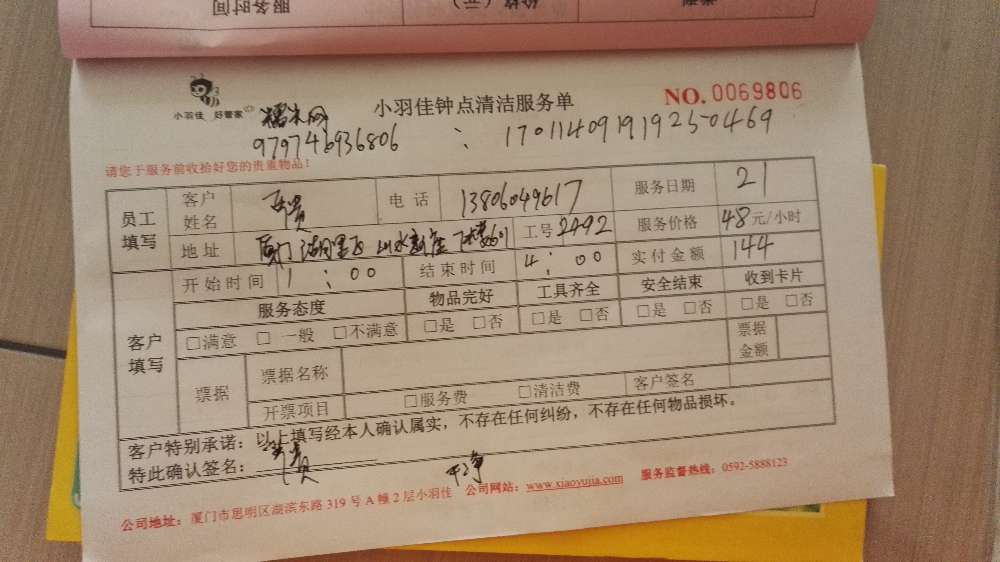 服务时间
小羽佳 好管家
糯米网
小羽佳钟点清洁服务单
NO. 0069806
979746936806 : 170114091919250469
请您于服务前收拾好您的贵重物品！
员工填写 客户姓名 电话 13806049617 服务日期 21
地址 厦门 湖里区 山水 工号 2492 服务价格 48元/小时
客户填写 开始时间 1:00 结束时间 4:00 实付金额 144
服务态度 物品完好 工具齐全 安全结束 收到卡片
□满意 □一般 □不满意 □是 □否 □是 □否 □是 □否 □是 □否
票据 票据名称 票据金额
开票项目 □服务费 □清洁费 客户签名
客户特别承诺：以上填写经本人确认属实，不存在任何纠纷，不存在任何物品损坏。
特此确认签名： 干净
公司地址：厦门市思明区湖滨东路319号A幢2层小羽佳 公司网站：www.xiaoyujia.com 服务监督热线：0592-5888123